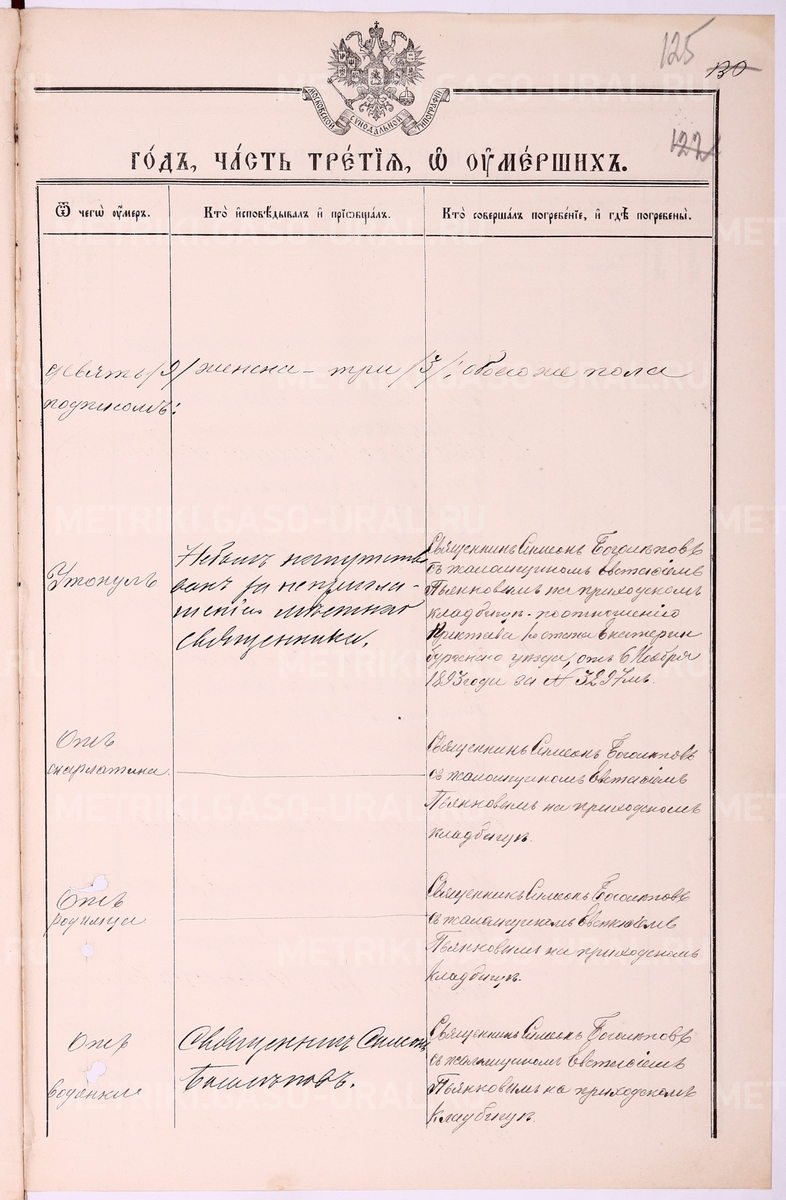 125
130
122
МОСКОВСКОЙ СѴНОДАЛЬНОЙ ТИПОГРАФІИ
ГО́ДЪ, ЧА́СТЬ ТРЕ́ТІѦ, Ѡ҆ ОУ҆МЕ́РШИХЪ.
Ѿ чегѡ̀ оу҆́меръ.
Кто̀ и҆сповѣ́дывалъ и҆ прїѡбща́лъ.
Кто̀ соверша́лъ погребе́нїе, и҆ гдѣ̀ погребены̀.
девять /9/ женска – три /3/; обоего же пола
Утонулъ
Небылъ напутство
ванъ за непригла-
шеніе мѣстнаго
священника.
Священникъ Симеонъ Боголѣповъ
съ псаломщикомъ Евгеніемъ
Пьянковымъ на приходскомъ
кладбищѣ по отношенію
Пристава стана Екатерин
бургскаго уѣзда, отъ 6 Ноября
1893 года за № 3297мъ.
Отъ
скарлатины.
Священникъ Симеонъ Боголѣповъ
съ псаломщикомъ Евгеніемъ
Пьянковымъ на приходскомъ
кладбищѣ.
Отъ
родимца
Священникъ Симеонъ Боголѣповъ
съ псаломщикомъ Евгеніемъ
Пьянковымъ на приходскомъ
кладбищѣ.
Отъ
водянки
Священникъ Симеонъ
Боголѣповъ.
Священникъ Симеонъ Боголѣповъ
съ псаломщикомъ Евгеніемъ
Пьянковымъ на приходскомъ
кладбищѣ.
METRIKI.GASO-URAL.RU